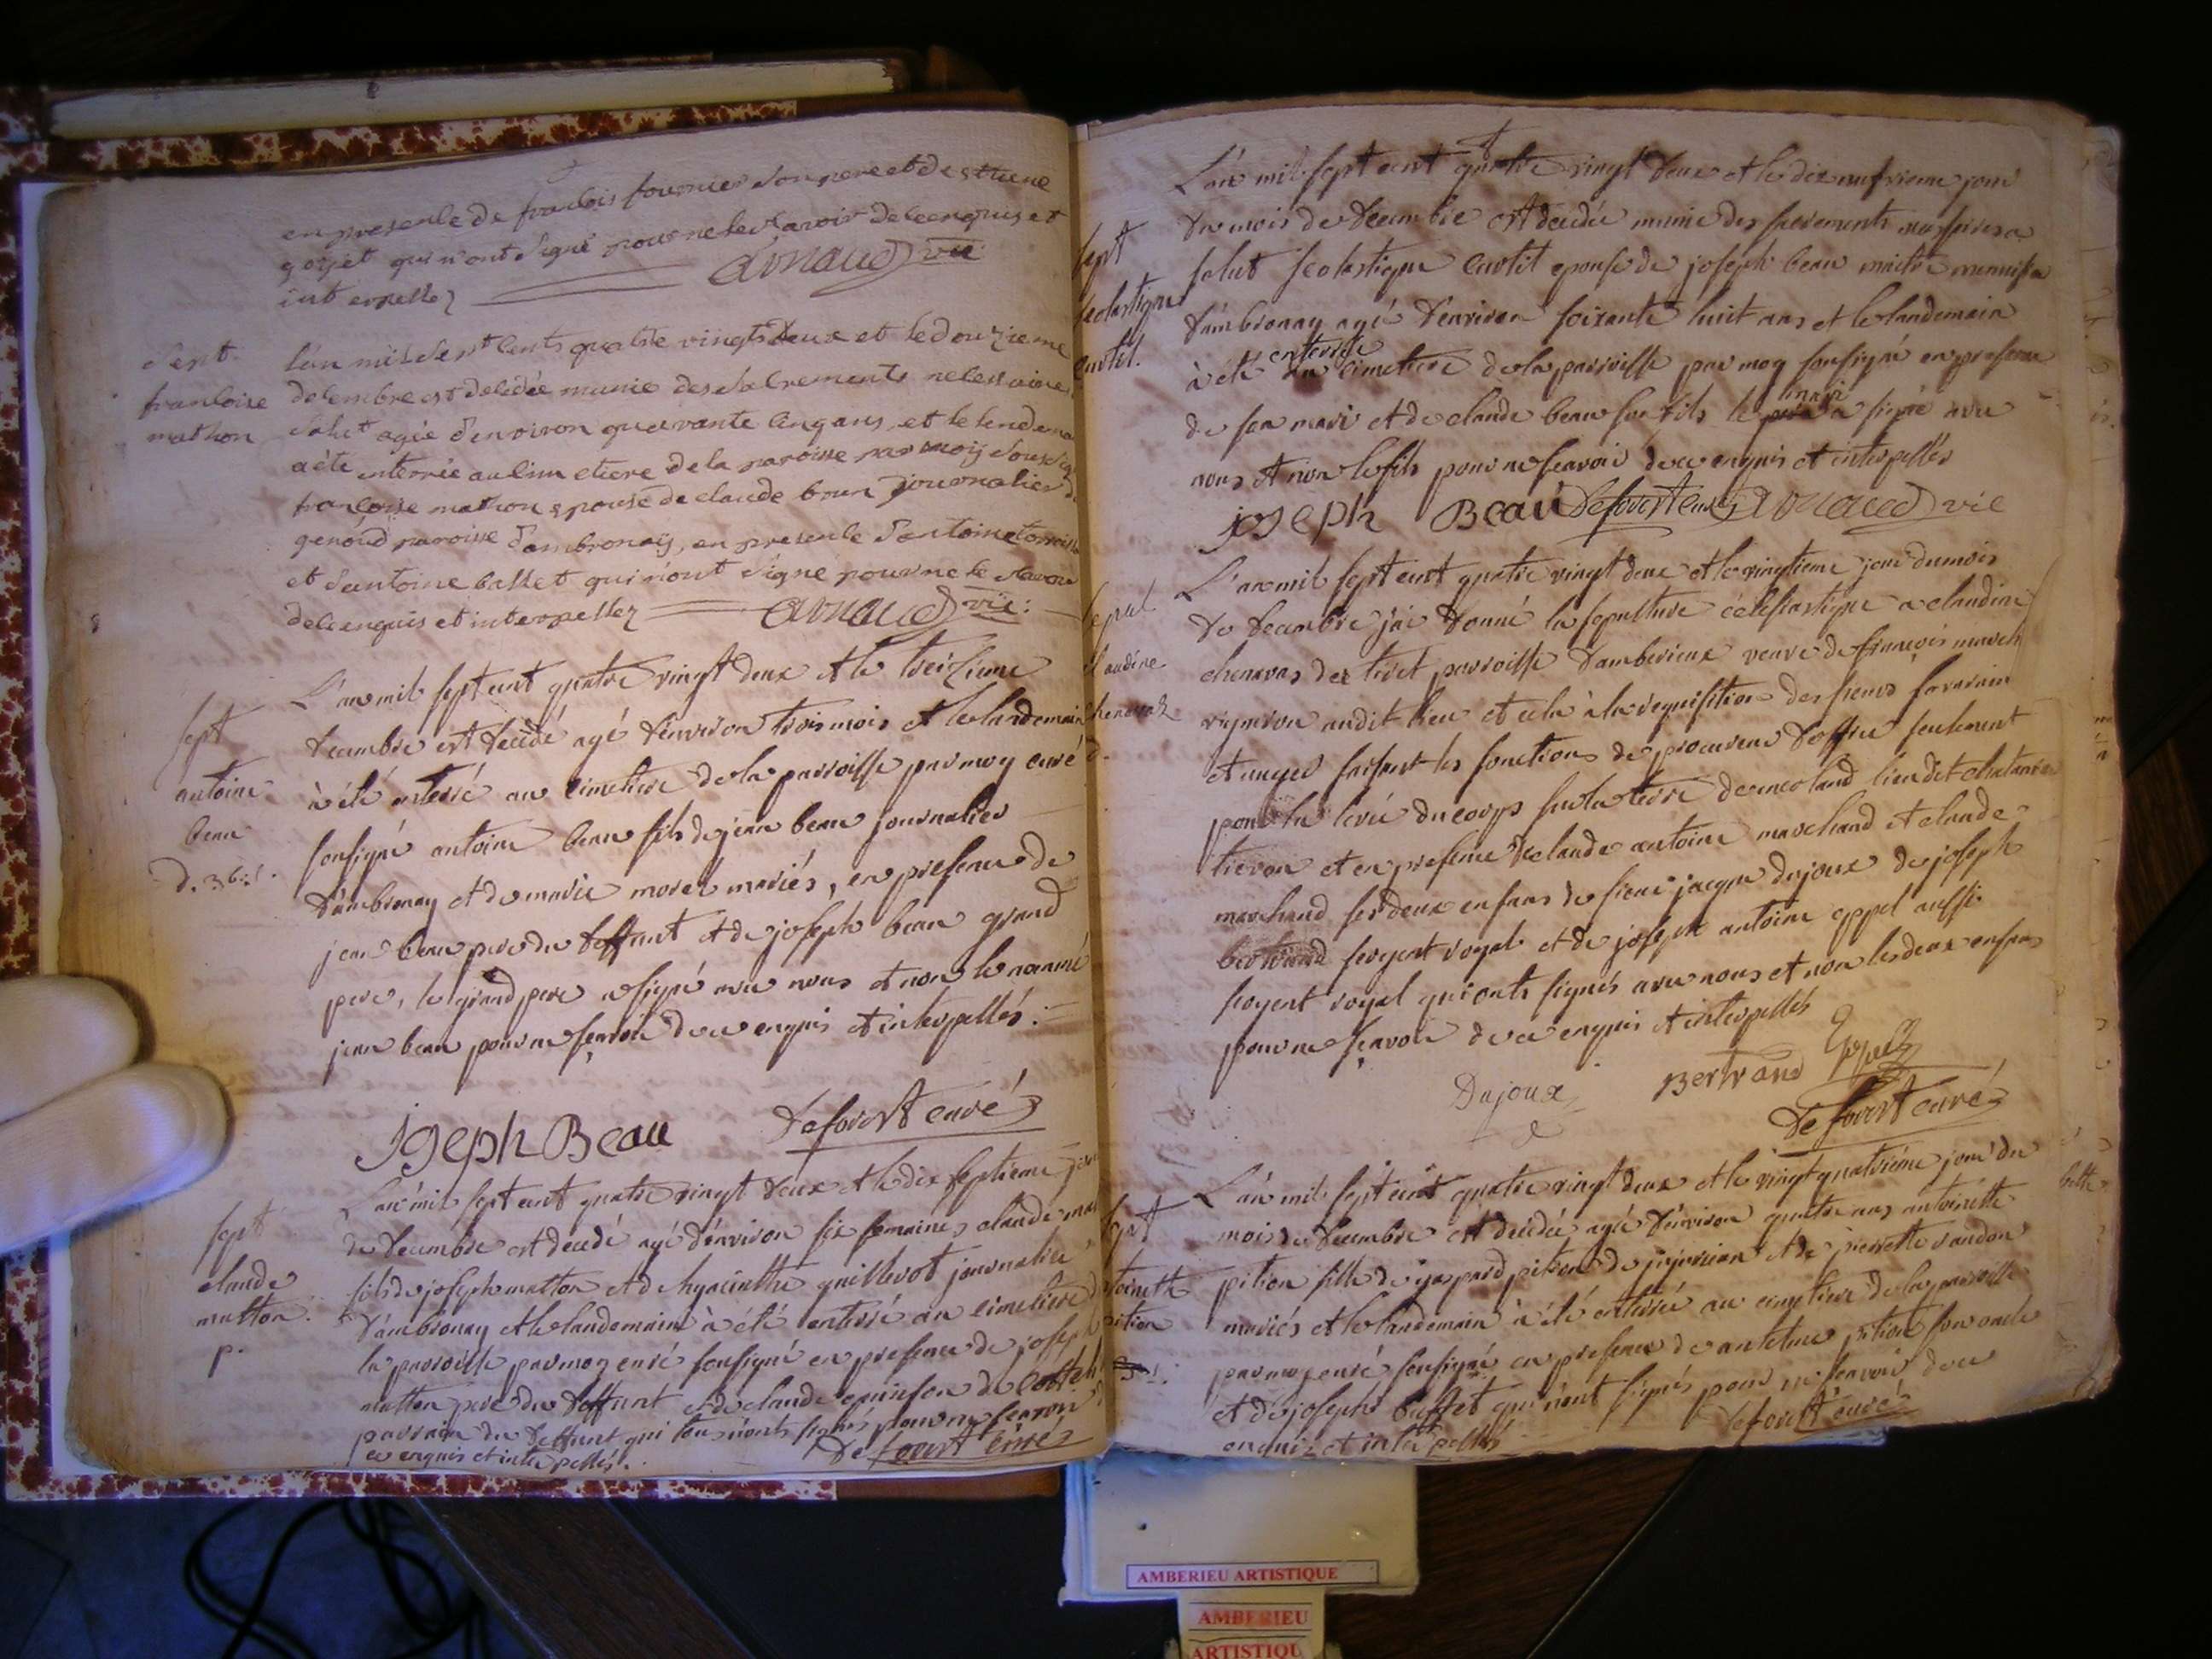 en presence de francois fournier son pere et d'estiene
goyet qui n'ont signé pour ne le scavoir de ce enquis et
interpellez Arnaud vic:
sept.
francoise
mathon
L'an mil sept cents quatre vingts deux et le douzieme
decembre est decedée munie des sacrements necessaires
salut agée d'environ quarante cinq ans, et le lendemain
a été interrée au cimetiere de la paroisse par moy soussigné
francoise mathon epouse de claude brun journalier
genoud paroisse d'ambronay, en presence d'antoine
et d'antoine ballet qui n'ont signé pour ne le scavoir
de ce enquis et interpellez Arnaud vic:
sept
antoine
beau
L'an mil sept cent quatre vingt deux et le treizieme
decembre est decédé agé d'environ trois mois et le landemain
à été enterré au cimetiere de la parroisse par moy curé
sousigné antoine beau fils de jean beau journalier
d'ambronay et de marie morel mariés, en presence de
jean beau pere du deffunt et de joseph beau grand
pere, le grand pere a signé avec nous et non le nommé
jean beau pour ne sçavoir de ce enquis et interpellés.
Joseph Beau Deforert curé
sept
claude
matton.
p.
L'an mil sept cent quatre vingt deux et le dix septieme jour
de decembre est decedé agé d'environ six semaines claude matton
fils de joseph matton et d'hyacinthe guillerot journalier
d'ambronay et le landemain à été enterré au cimetiere de
la parroisse par moy curé sousigné en presence de joseph
matton pere du deffunt et de claude
parrain du deffunt qui tous n'ont signés pour ne scavoir
ce enquis et interpellés. Deforert curé
sept
scolastique
curtil.
L'an mil sept cent quatre vingt deux et le dix neufvieme jour
du mois de decembre est decedée munie des sacrements necessires a
salut scolastique curtil epouse de joseph beau maitre menuisier
d'ambronay agée d'environ soixante huit ans et le landemain
à été enterrée au cimetiere de la parroisse par moy sousigné en presence
de son mari et de claude beau son fils le mari a signé avec
nous et non le fils pour ne scavoir de ce enquis et interpellés
joseph Beau Deforert curé Arnaud vic
sepul
claudine
chenavas
L'an mil sept cent quatre vingt deux et le vingtieme jour du mois
de decembre j'ai donné la sepulture eclesiastique a claudine
chenavas de tiret parroisse d'amberieux veuve de françois march
vigneron audit lieu et cela à la requisition des sieurs favarain
et auger faisant les fonctions de procureur d'office seulement
pour la levée du corps sur la terre de lieu dit
et en presence de claude antoine marchand et claude
marchand ses deux enfans de sieur jacque dujoux de joseph
bertrand sergent royal et de joseph antoine eppel aussi
sergent royal qui onts signés avec nous et non les deux enfans
pour ne sçavoir de ce enquis et interpellés
Dujoux Bertrand Eppel
Deforert curé
sept
toinette
pition
L'an mil sept cent quatre vingt deux et le vingt quatrième jour du
mois de decembre est decedée agée d'environ quatre ans antoinette
pition fille de gaspard pition de jujurieux et de pierrette vaudon
mariés et le landemain à été enterrée au cimetiere de la parroisse
par moy curé sousigné en presence de antelme pition son oncle
et de joseph buffet qui n'ont signés pour ne scavoir de ce
enquis et interpellés Deforert curé
AMBERIEU ARTISTIQUE
AMBERIEU
ARTISTIQU